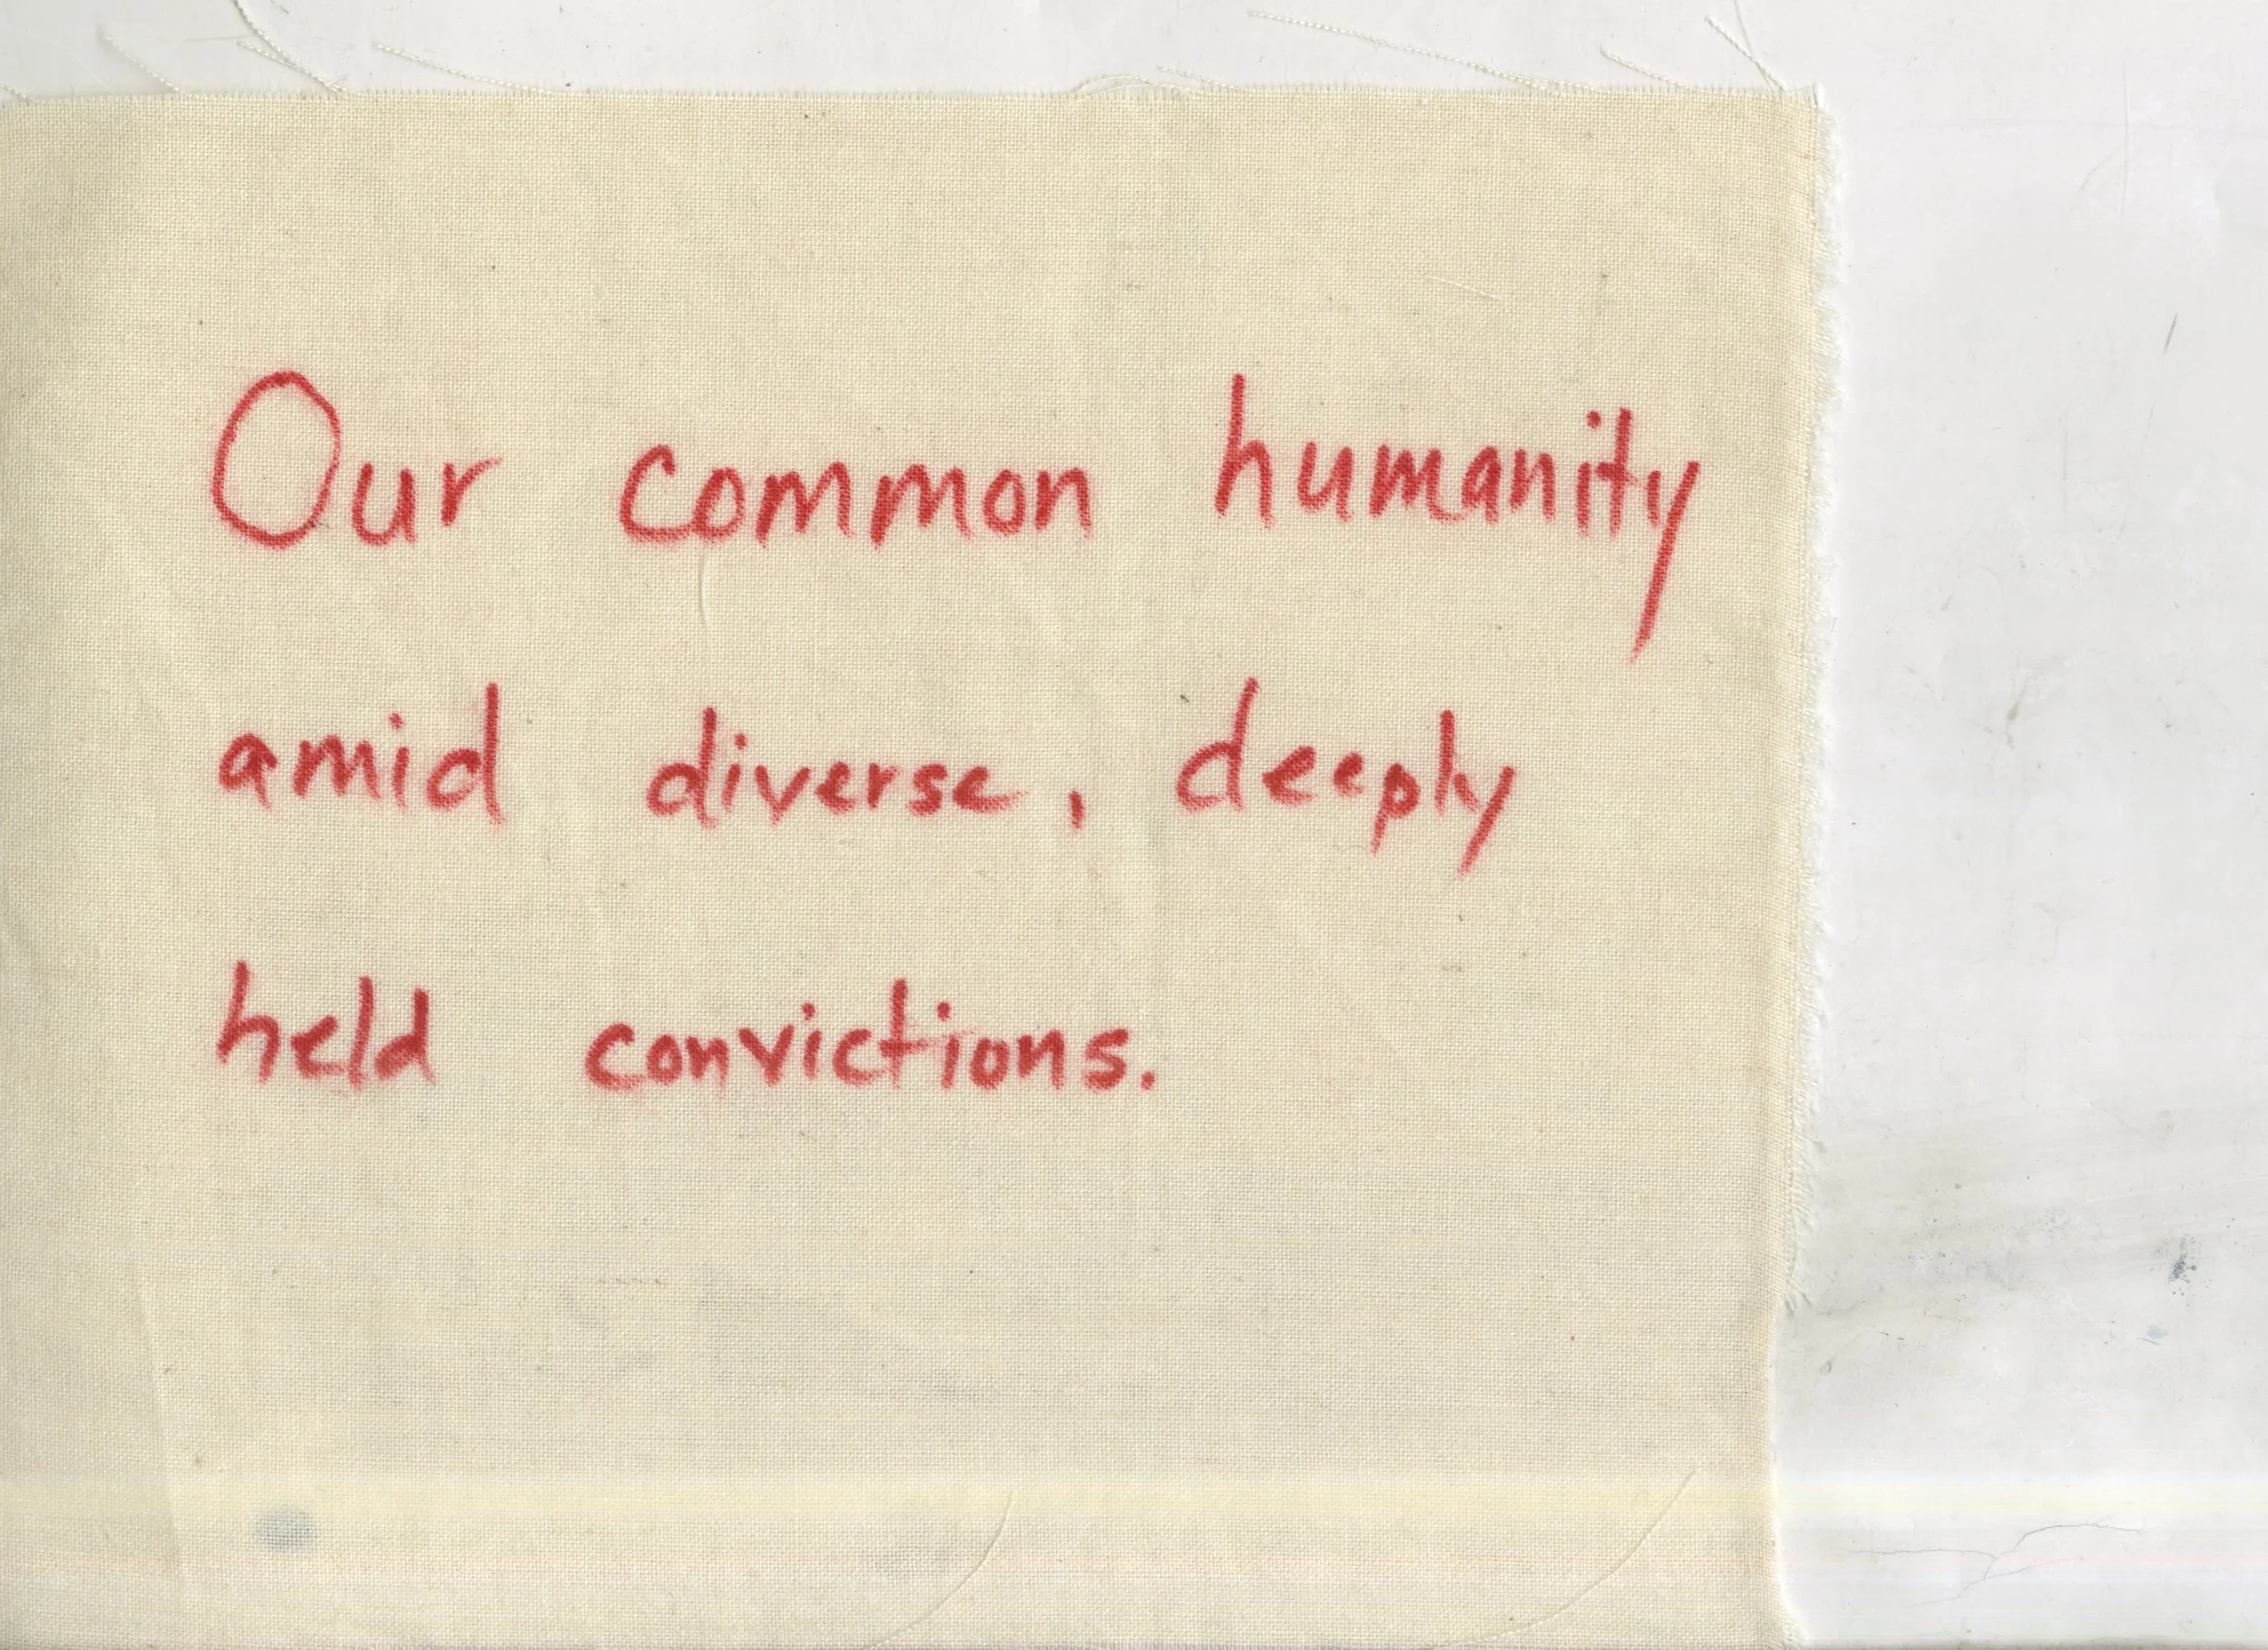 Our common humanity
amid diverse, deeply
held convictions.